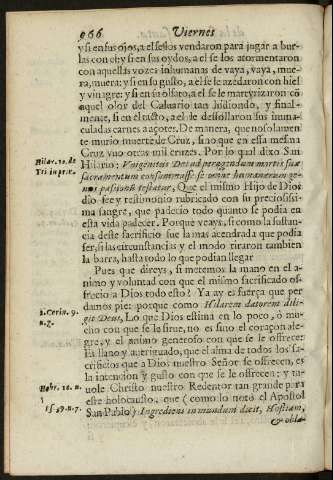 966 Viernes
y si en sus ojos, a el se los vendaron para jugar a bur-
las con el: y si en sus oydos, a el se los atormentaron
con aquellas vozes inhumanas de vaya, vaya, mue-
ra, muera: y si en su gusto, a el se le azedaron con hiel
y vinagre: y si en su olfato, a el se le martyrizaron cõ
aquel olor del Caluario tan hidiondo, y final-
mente, si en el tacto, a el le dessollaron sus inma-
culadas carnes a açotes. De manera, que no solamen
te murio muerte de Cruz, sino que en esta mesma
Cruz vuo otras mil cruzes. Por lo qual dixo San
Hilar. 10. de
Trin.
Hilario: Vnigenitus Dei ad peragendum mortis suæ
sacramentum consummasse se omne humanarum ge-
nus passionũ testatur, Que el mismo Hijo de Dios
dio fee y testimonio rubricado con su preciosissi-
ma sangre, que padecio todo quanto se podia en
esta vida padecer. Porque vaya, si como la sustan-
cia deste sacrificio fue la mas acendrada que podia
ser, si las circunstancias y el modo tiraron tambien
la barra, hasta todo lo que podian llegar
Pues que direys, si metemos la mano en el a-
nimo y voluntad con que el mismo sacrificado os-
frecio a Dios todo esto? Ya ay es fuerça que per
damos pie: porque como Hilarem datorem dili-
2. Corin. 9.
n. 7.
git Deus, Lo que Dios estima en lo poco, ò mu-
cho con que se le sirue, no es sino el coraçon ale-
gre, y el animo generoso con que se le ofrece:
Es llano y aueriguado, que el alma de todos los sa-
crificios que a Dios nuestro Señor se ofrecen, es
la intencion y gusto con que se le ofrecen: y tu-
Hebr. 10. n.
5
uole Christo nuestro Redentor tan grande para
este holocausto, que (como lo noto el Apostol
San Pablo) Ingrediens in mundum dicit, Hostiam,
& obla-